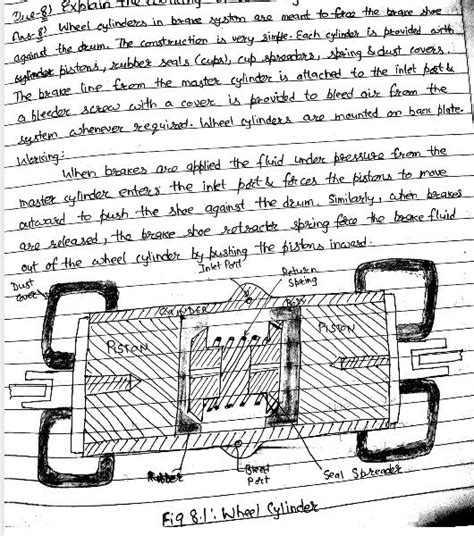 Que-8) Explain the
Ans:8) Wheel cylinders in brake system are meant to force the brake shoe
against the drum. The construction is very simple. Each cylinder is provided with
pistons, rubber seals (cups), cup spreaders, spring & dust covers.
The brake line from the master cylinder is attached to the inlet port &
a bleeder screw with a cover is provided to bleed air from the
system whenever required. Wheel cylinders are mounted on back plate.
Working:
When brakes are applied the fluid under pressure from the
master cylinder enters the inlet port & forces the pistons to move
outward to push the shoe against the drum. Similarly, when brakes
are released, the brake shoe retracter spring force the brake fluid
out of the wheel cylinder by pushing the pistons inward.
Inlet Port
Return
Spring
Dust
Cover
CYLINDER
BODY
PISTON
PISTON
Rubber
Bleed
Port
Seal Spreader
Fig 8.1: Wheel Cylinder